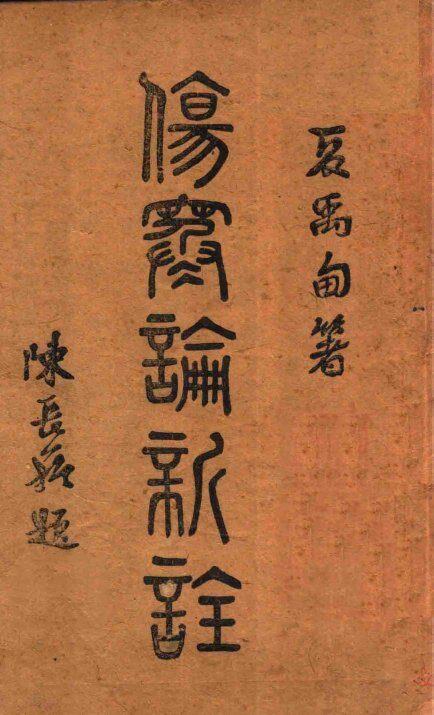 夏禹甸箸
傷寒論新詮
陳長題